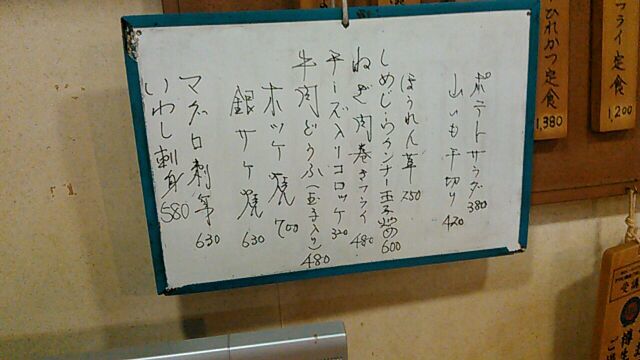 フライ定食
1,200
ひれかつ定食
1,380
ポテトサラダ 380
山いも千切り 420
ほうれん草 250
しめじ・ウインナー玉子炒め 600
ねぎ肉巻きフライ 480
チーズ入りコロッケ 320
牛肉どうふ(玉子入り) 480
ホッケ焼 700
銀サケ焼 630
マグロ刺身 630
いわし刺身 580